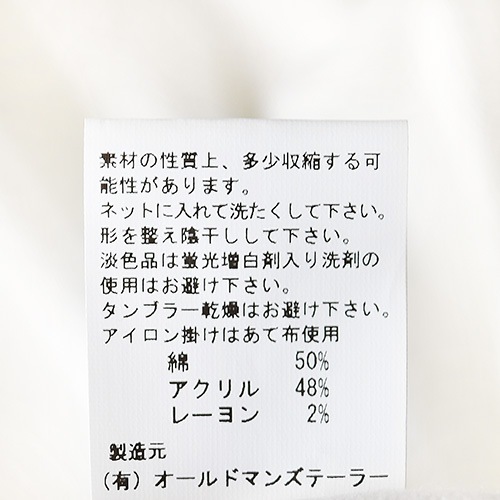 素材の性質上、多少収縮する可
能性があります。
ネットに入れて洗たくして下さい。
形を整え陰干しして下さい。
淡色品は蛍光増白剤入り洗剤の
使用はお避け下さい。
タンブラー乾燥はお避け下さい。
アイロン掛けはあて布使用
綿 50%
アクリル 48%
レーヨン 2%
製造元
(有) オールドマンズテーラー